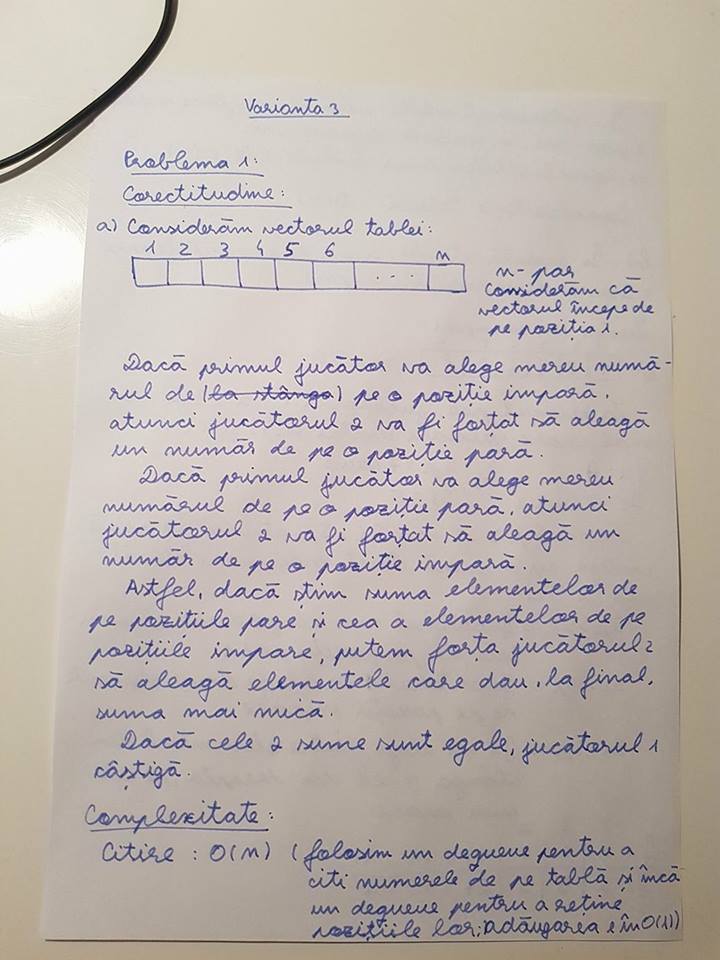 Varianta 3
Problema 1:
Corectitudine:
a) Considerăm vectorul tablei:
1 2 3 4 5 6 n
...
n - par
Considerăm că
vectorul începe de
pe poziția 1.
Dacă primul jucător va alege mereu numă-
rul de (la stânga) pe o poziție impară,
atunci jucătorul 2 va fi forțat să aleagă
un număr de pe o poziție pară.
Dacă primul jucător va alege mereu
numărul de pe o poziție pară, atunci
jucătorul 2 va fi forțat să aleagă un
număr de pe o poziție impară.
Astfel, dacă știm suma elementelor de
pe pozițiile pare și cea a elementelor de pe
pozițiile impare, putem forța jucătorul 2
să aleagă elementele care dau, la final,
suma mai mică.
Dacă cele 2 sume sunt egale, jucătorul 1
câștigă.
Complexitate:
Citire : O(n) (folosim un degueue pentru a
citi numerele de pe tablă și încă
un degueue pentru a reține
pozițiile lor; adăugarea e în O(1))